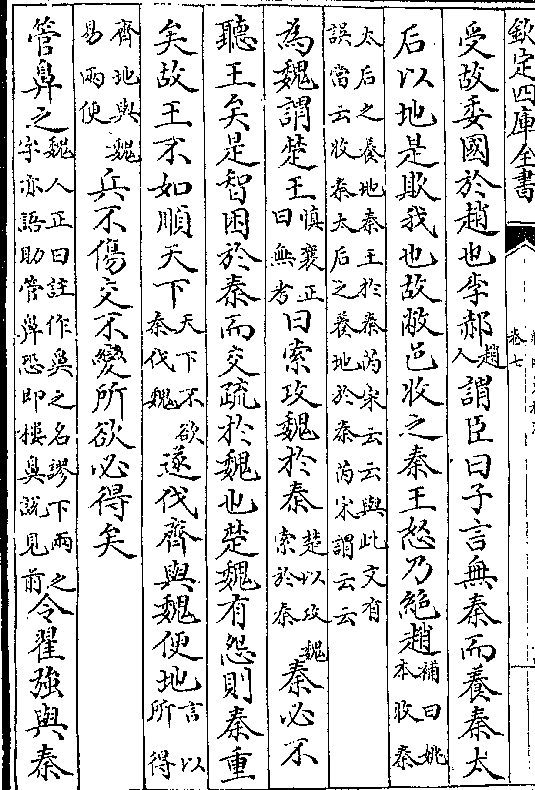 欽定四庫全書
卷七
受故委國於趙也李郝趙人謂臣曰子言無秦而養秦太
后以地是欺我也故敝邑收之秦王怒乃絕趙補曰姚本收秦
太后之養地秦王於秦芮宋云云與此文有
誤當云收秦太后之養地於秦芮宋謂云云
為魏謂楚王慎襄正曰無考曰索攻魏於秦楚以攻魏索於秦秦必不
聽王矣是智困於秦而交疏於魏也楚魏有怨則秦重
矣故王不如順天下天下不欲秦伐魏遂伐齊與魏便地言以所得
齊地與魏易兩便兵不傷交不變所欲必得矣
管鼻之魏人正曰註作奐之名謬下兩之字亦語助管鼻恐即樓奐說見前令翟強與秦